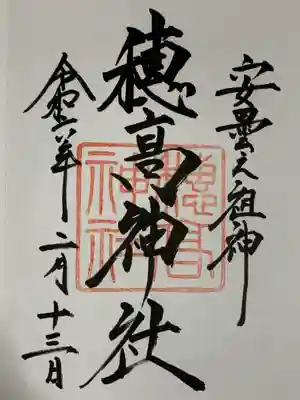 安曇之祖神
穂高神社
穂高神社
令和六年二月十三日